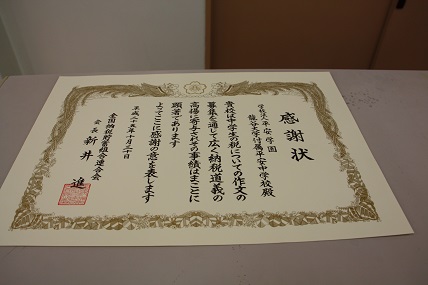 感謝状
学校法人平安学園
龍谷大学付属平安中学校殿
貴校は中学生の税についての作文の
募集を通して広く納税道義の
高揚に寄与されその事績はまことに
顕著であります
よってここに感謝の意を表します
平成二十五年十月三十日
全国納税貯蓄組合連合会
会長 新井 進